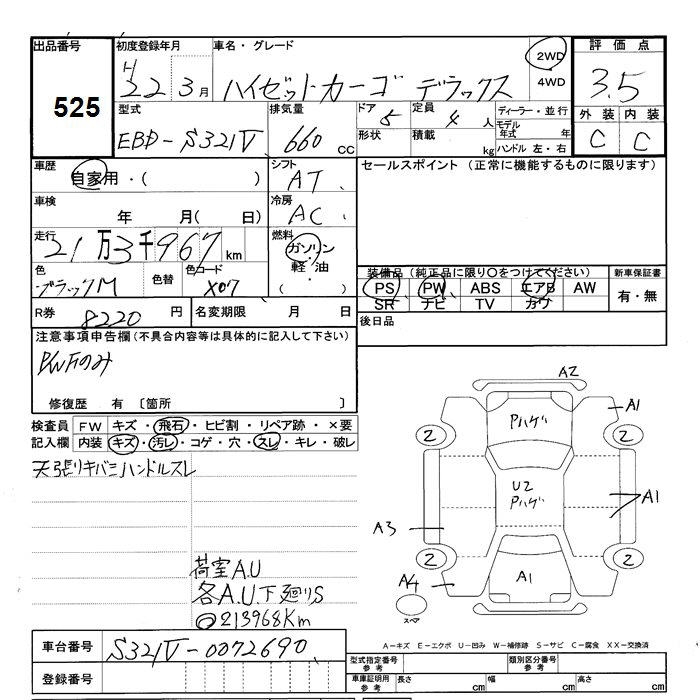 出品番号
525
初度登録年月
H 22 3月
車名・グレード
ハイゼットカーゴ デラックス
2WD
4WD
評価点
3.5
外装 内装
C C
型式
EBD-S321V
排気量
660 cc
ドア 5
形状
定員 4 人
積載 kg
ディーラー・並行
モデル年式 年
ハンドル 左・右
車歴
自家用・( )
シフト
AT
セールスポイント (正常に機能するものに限ります)
車検
年 月( 日)
冷房
AC
走行
21万3千967km
燃料
ガソリン
軽油
・( )
色
ブラックM
色替
色コード
X07
装備品 (純正品に限り○をつけてください)
新車保証書
PS PW ABS エアB AW
SR ナビ TV カワ
有・無
R券 8220 円
名変期限 月 日
後日品
注意事項申告欄(不具合内容等は具体的に記入して下さい)
P/WFのみ
修復歴 有 〔箇所 〕
検査員 FW キズ・飛石・ヒビ割・リペア跡・×要
記入欄 内装 キズ・汚レ・コゲ・穴・スレ・キレ・破レ
天張リキバミハンドルスレ
荷室A.U
各A.U.下廻りS
○213968Km
A2
A1
Pハゲ
2
2
U2
Pハゲ
A1
A3
2
2
A4
A1
スペア
A-キズ E-エクボ U-凹み W-補修跡 S-サビ C-腐食 XX-交換済
車台番号 S321V-0072690
登録番号
型式指定番号 参考
類別区分番号 参考
車庫証明用 参考
長さ cm 幅 cm 高さ cm